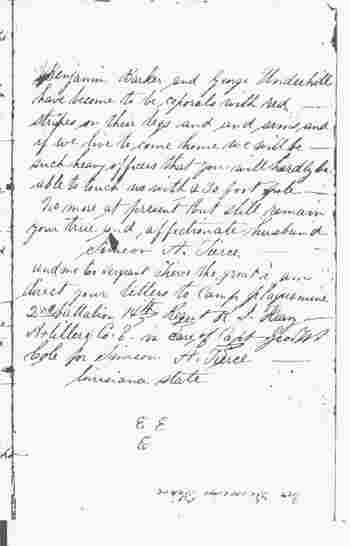 Benjamin Barker and George Underhill
have become to be coporals with red
stripes on their legs and and arms and
if we live to come home we will be
such heavy officers that you will hardly be
able to touch us with a 30 foot pole
No more at present but still remain
your true and affectionate husband
Simeon A. Tierce
and me too
direct your letters to Camp Plaquemine
2nd Battalion 14th Regmt R. I. Heavy
Artillery Co. E. in care of Capt
Cole for Simeon A. Tierce
Louisiana State
E E
E